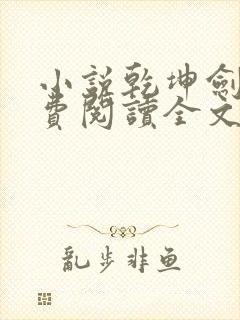 小說乾坤劍
費閱讀全文
亂步非鱼